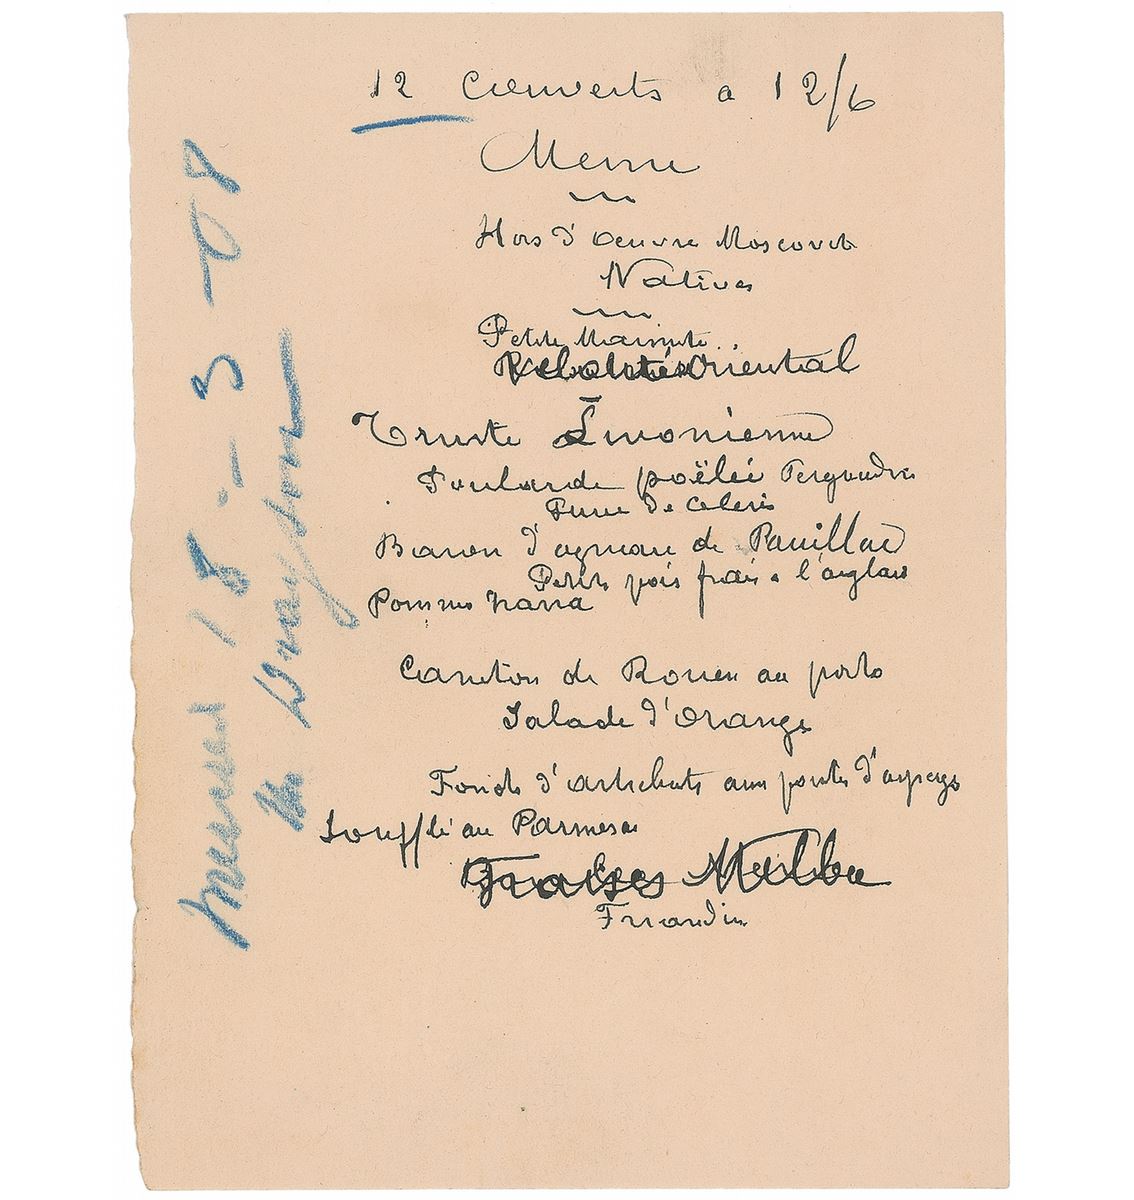 12 Couverts a 12/6
Menu
Hors d'oeuvre Moscovite
Natives
Petite Marmite
Velouté Oriental
Truite Livonienne
Poularde poëlée Perigourdine
Puree de Celeris
Baron d'agneau de Pauillac
Petits pois frais a l'anglaise
Pommes Nana
Caneton de Rouen au porto
Salade d'Orange
Fonds d'artichauts aux pointes d'asperges
Soufflé au Parmesan
Fraises Melba
Friandises
18-3-08